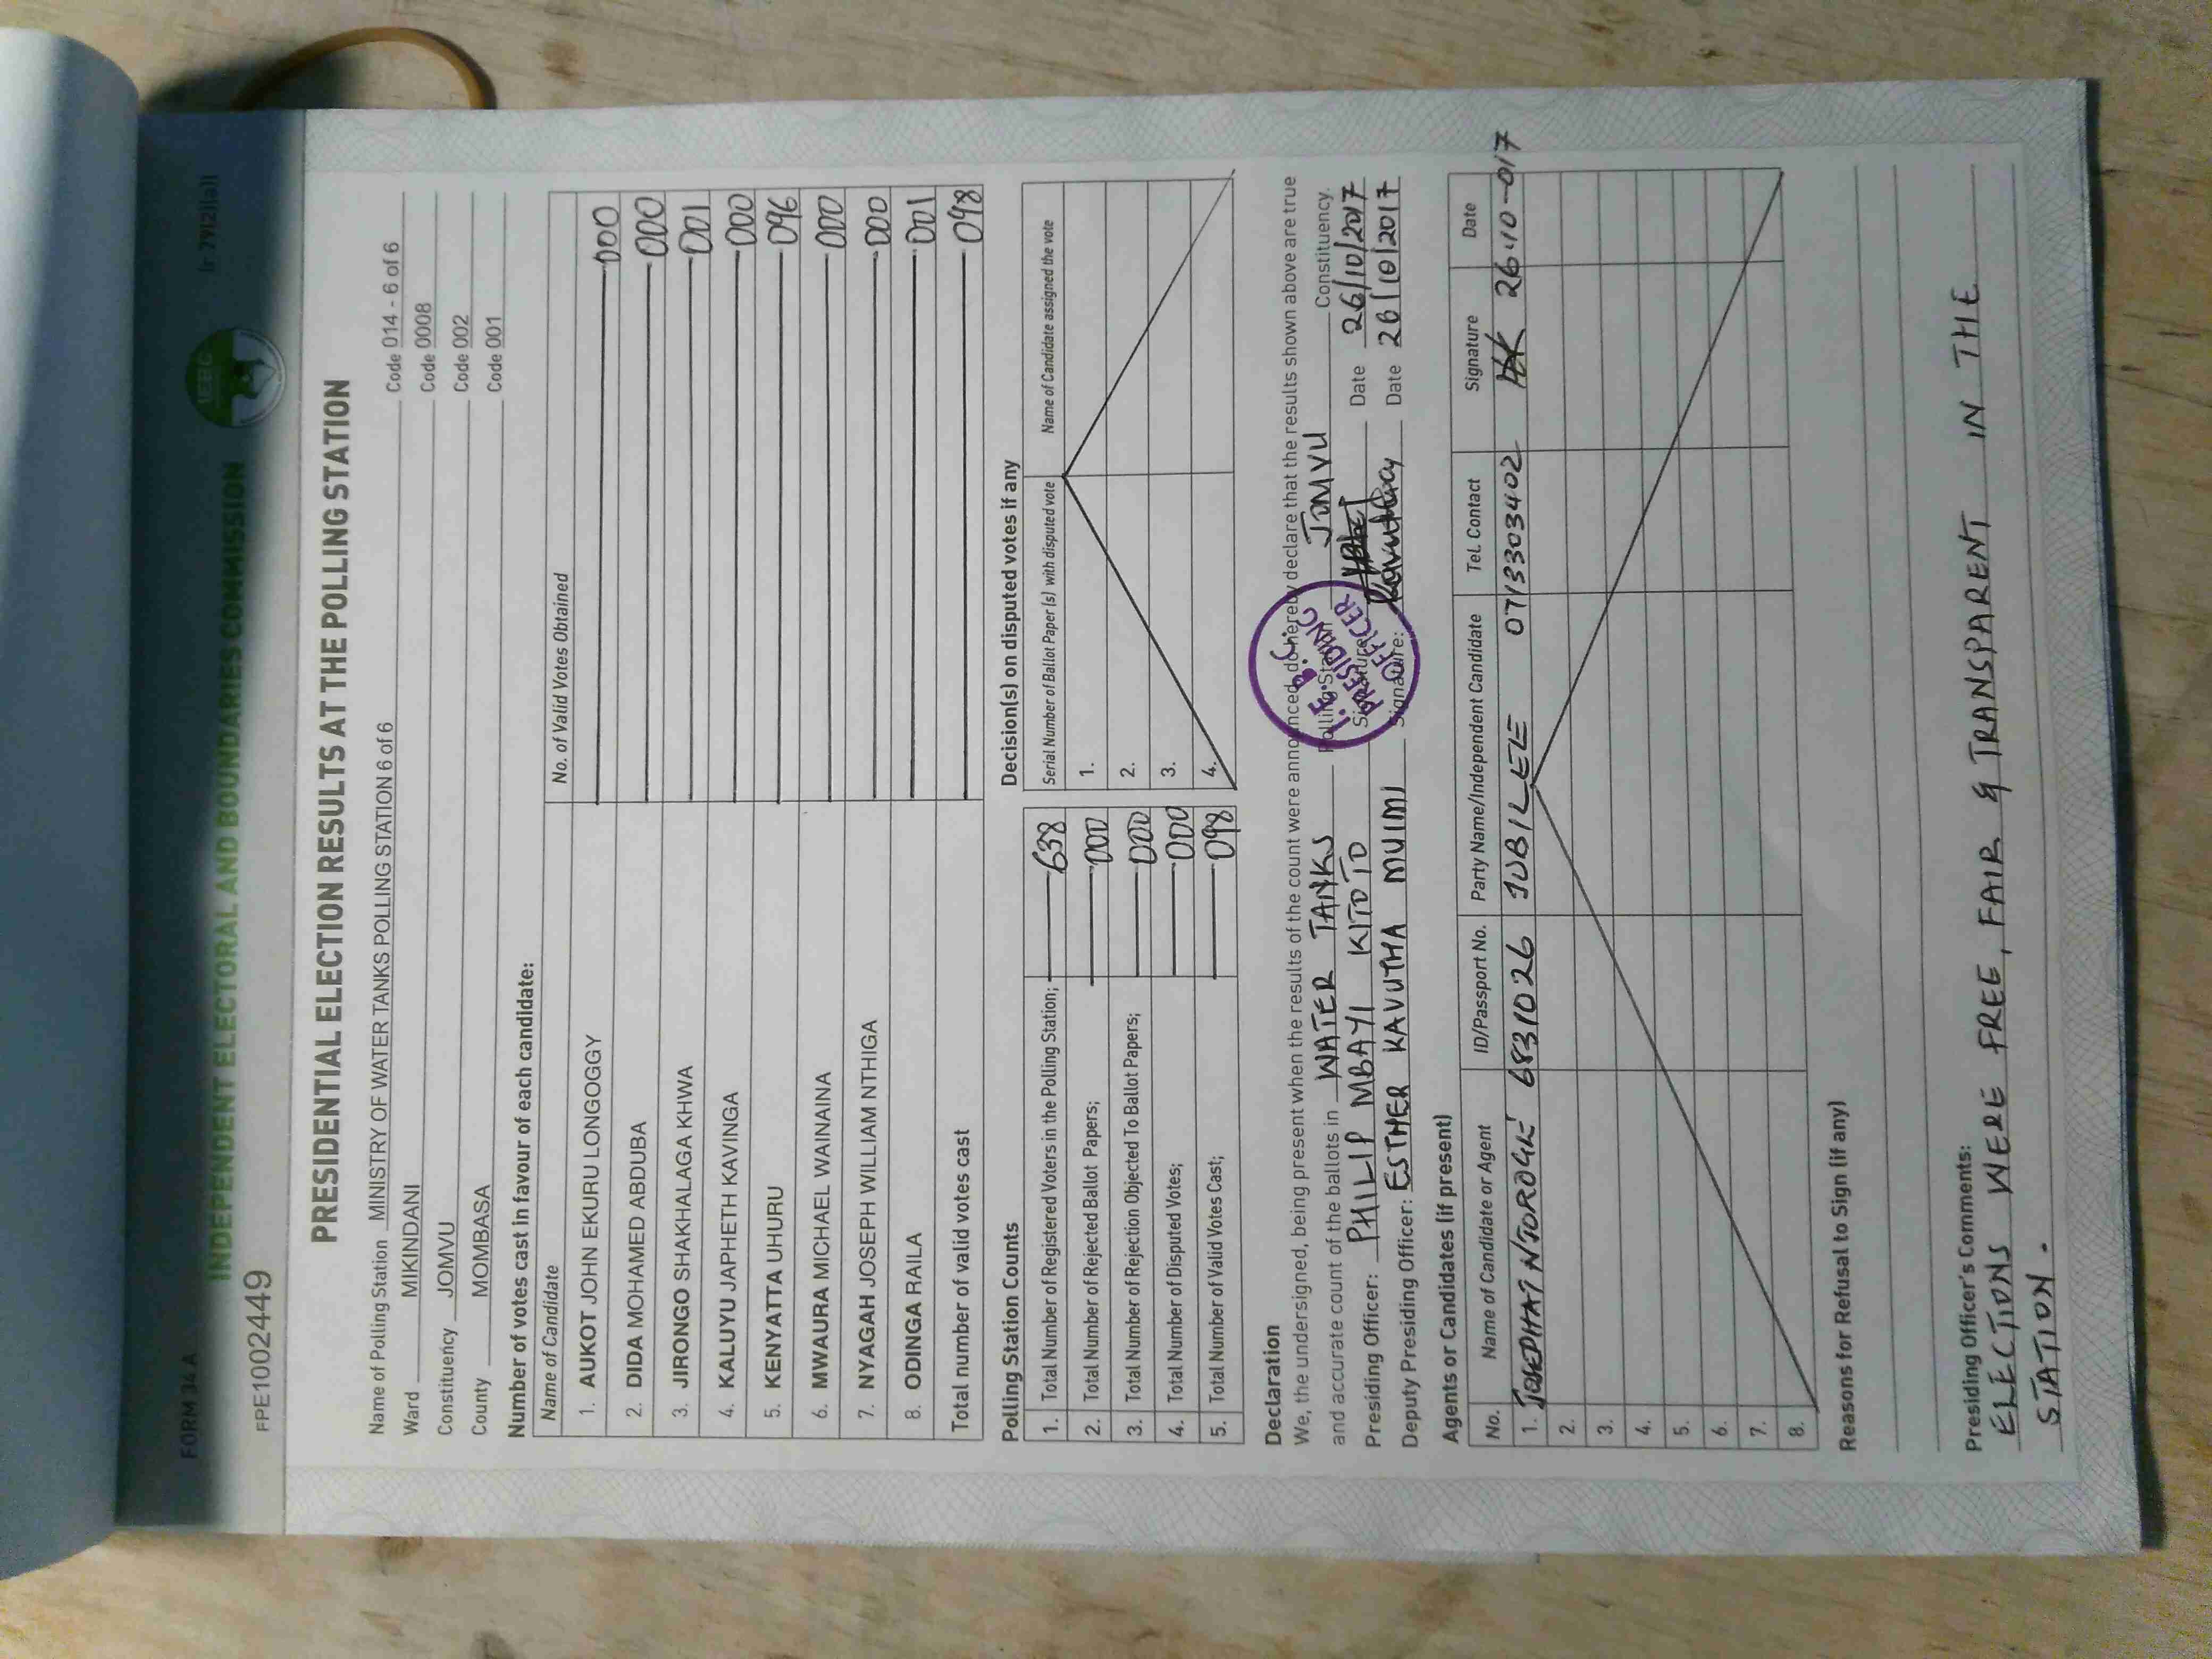 FORM 34 A
(r 79(2)(a))
IEBC
INDEPENDENT ELECTORAL AND BOUNDARIES COMMISSION
FPE1002449
PRESIDENTIAL ELECTION RESULTS AT THE POLLING STATION
Name of Polling Station MINISTRY OF WATER TANKS POLLING STATION 6 of 6 Code 014 - 6 of 6
Ward MIKINDANI Code 0008
Constituency JOMVU Code 002
County MOMBASA Code 001
Number of votes cast in favour of each candidate:
Name of Candidate No. of Valid Votes Obtained
1. AUKOT JOHN EKURU LONGOGGY 000
2. DIDA MOHAMED ABDUBA 000
3. JIRONGO SHAKHALAGA KHWA 001
4. KALUYU JAPHETH KAVINGA 000
5. KENYATTA UHURU 096
6. MWAURA MICHAEL WAINAINA 000
7. NYAGAH JOSEPH WILLIAM NTHIGA 000
8. ODINGA RAILA 001
Total number of valid votes cast 098
Polling Station Counts
1. Total Number of Registered Voters in the Polling Station; 638
2. Total Number of Rejected Ballot Papers; 000
3. Total Number of Rejection Objected To Ballot Papers; 000
4. Total Number of Disputed Votes; 000
5. Total Number of Valid Votes Cast; 098
Decision(s) on disputed votes if any
Serial Number of Ballot Paper (s) with disputed vote Name of Candidate assigned the vote
1.
2.
3.
4.
Declaration
We, the undersigned, being present when the results of the count were announced, do hereby declare that the results shown above are true
and accurate count of the ballots in WATER TANKS Polling Station JOMVU Constituency.
Presiding Officer: PHILIP MBAYI KITOTO Signature: Date 26/10/2017
Deputy Presiding Officer: ESTHER KAVUTHA MUIMI Signature: Date 26/10/2017
I.E.B.C.
PRESIDING
OFFICER
Agents or Candidates (if present)
No. Name of Candidate or Agent ID/Passport No. Party Name/Independent Candidate Tel. Contact Signature Date
1. JOSEPHAT NJOROGE 6831026 JUBILEE 0713303402 26-10-017
2.
3.
4.
5.
6.
7.
8.
Reasons for Refusal to Sign (if any)
Presiding Officer's Comments:
ELECTIONS WERE FREE, FAIR & TRANSPARENT IN THE
STATION.